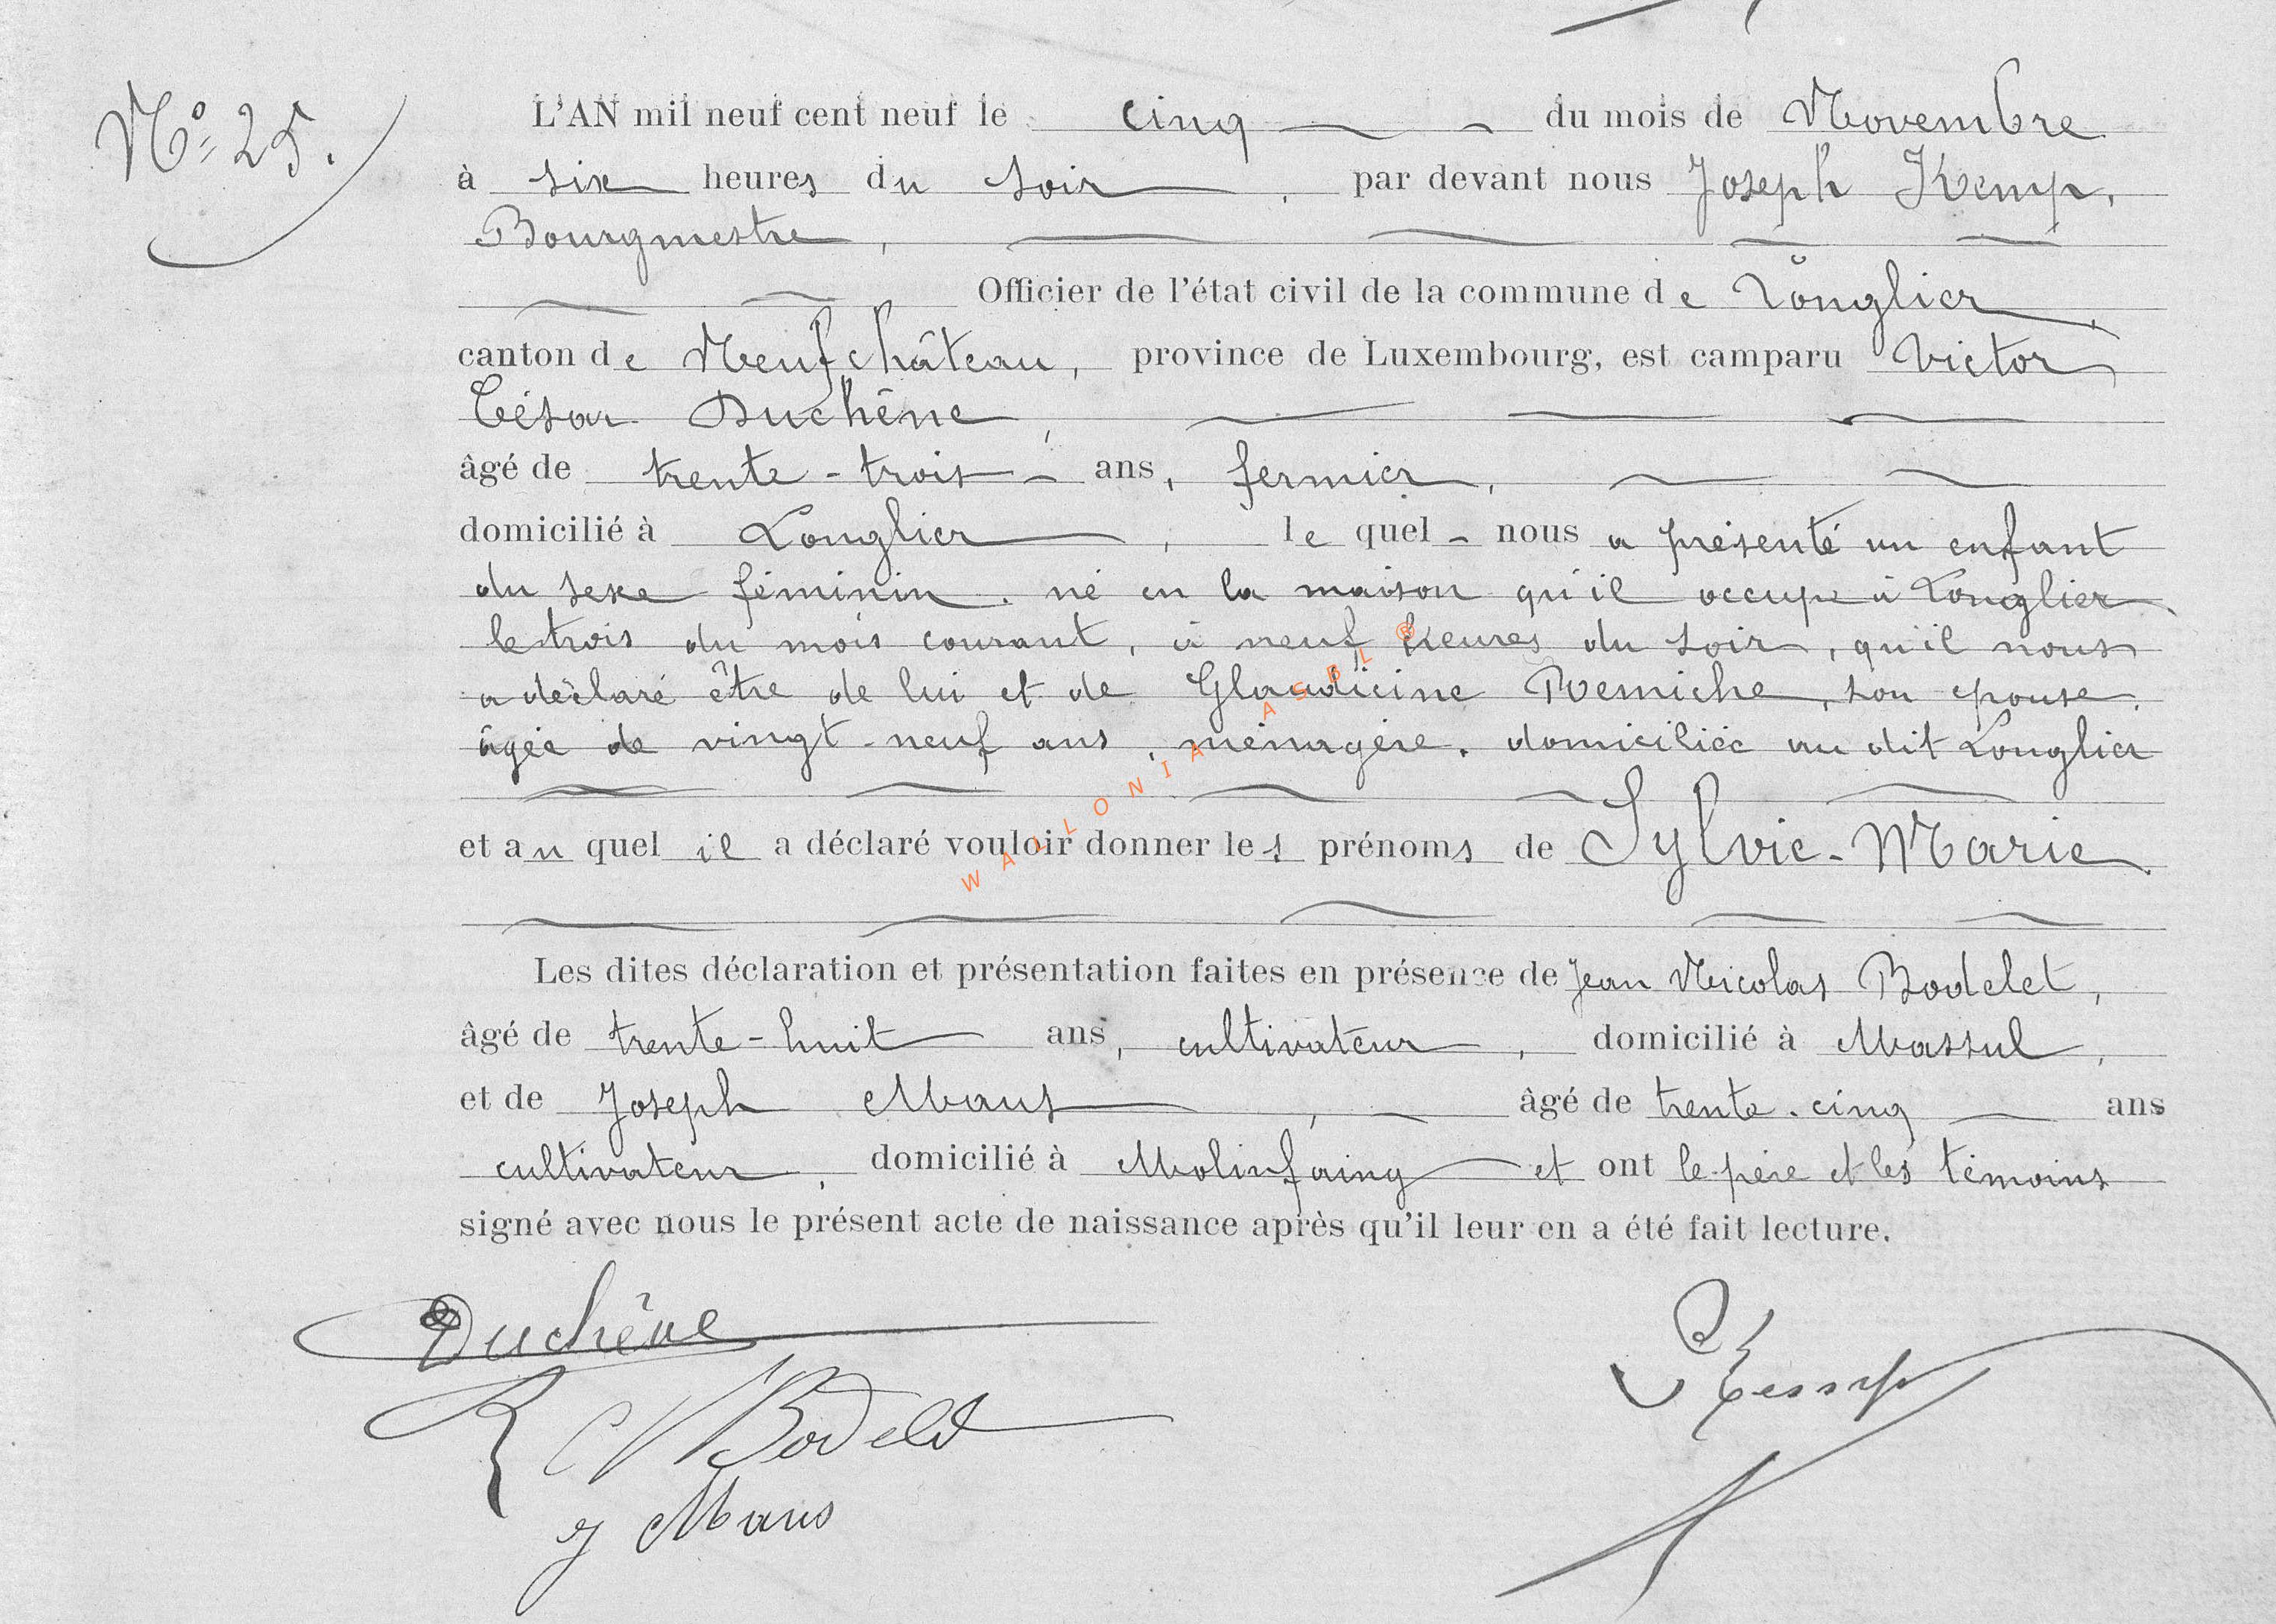 Nº 25.
L'AN mil neuf cent neuf le cinq du mois de Novembre
à six heures du soir, par devant nous Joseph Kemp,
Bourgmestre,
Officier de l'état civil de la commune de Longlier,
canton de Neufchâteau, province de Luxembourg, est camparu Victor
César Duchêne,
âgé de trente-trois ans, fermier,
domicilié à Longlier, le quel nous a présenté un enfant
du sexe féminin, né en la maison qu'il occupe à Longlier
le trois du mois courant, à neuf heures du soir, qu'il nous
a déclaré être de lui et de Glaudicine Remiche, son épouse,
âgée de vingt-neuf ans, ménagère, domiciliée au dit Longlier
et au quel il a déclaré vouloir donner les prénoms de Sylvie-Marie.
Les dites déclaration et présentation faites en présence de Jean Nicolas Bodelet,
âgé de trente-huit ans, cultivateur, domicilié à Massul,
et de Joseph Maus, âgé de trente-cinq ans
cultivateur, domicilié à Molinfaing et ont le père et les témoins
signé avec nous le présent acte de naissance après qu'il leur en a été fait lecture.
Duchêne
Kemp
Bodelet
J Maus
WALLONIA ASBL ®